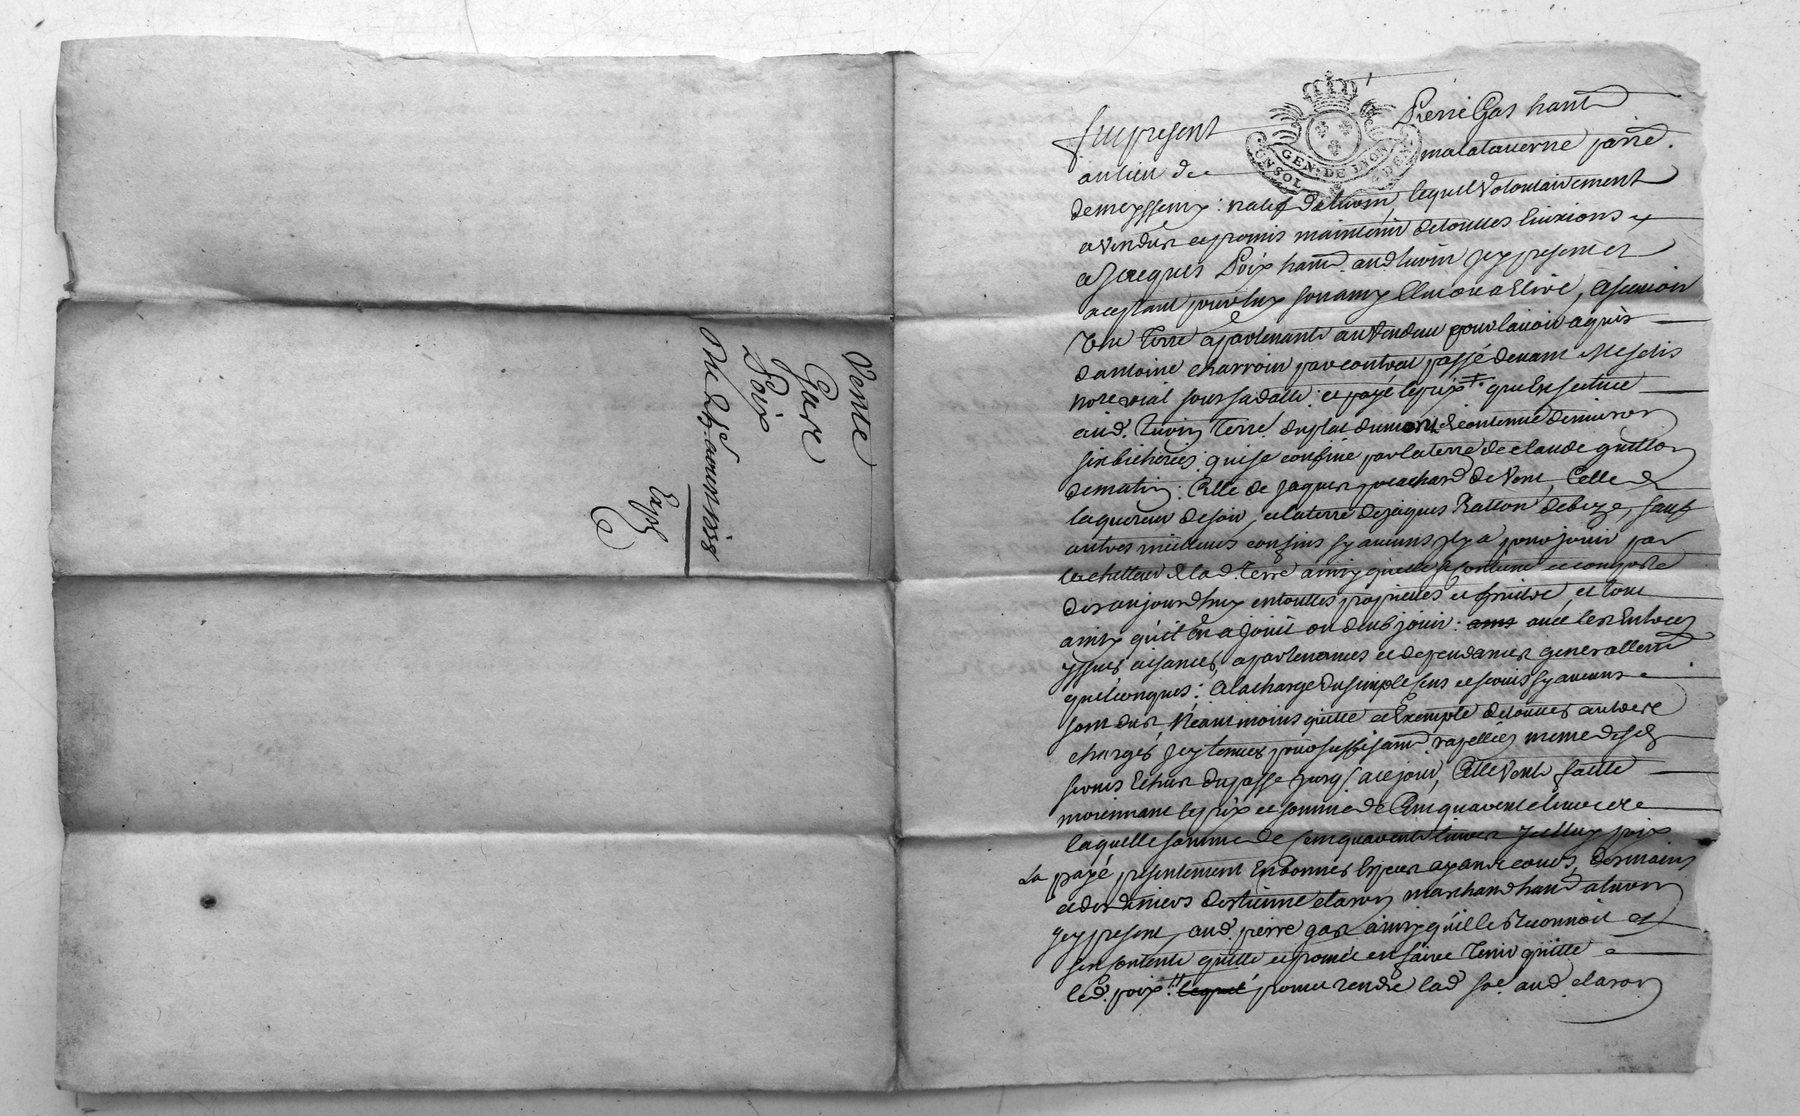 Vente
Gare
Poix
Expé
GEN. DE LYON
UN SOL
Fut present Pierre Gas hant
au lieu de malataverne parre.
de meyssemy: natif de luvin, lequel volontairement
a vendu et promis maintenir de touttes evixions
a Jacques Poix hant. aud luvin icy present et
aceptant pour luy son amy elu ou a elire, a scavoir
une terre apartenante au vendeur pour lavoir aquis
dantoine charroin par contrat passé devant Me
notre roial sous sa datte: et payé le prix qui est scittue
aud. luvin terre du plat du mont et contenue denviron
six bicherées: qui se confine par la terre de claude guillon
de matin: Celle de Jaques de vent, Celle de
laquereur de soir, et la terre de jaques Ratton de bize, sauf
autres meilleurs confins sy aucuns il y a pour jouir par
lachetteur de lad. terre ainsy quelle se contient et comporte
des aujourdhuy en touttes proprietes et fruits, et tout
ainsy quil en a jouit ou deub jouir: avec les entrées
yssues aisances, apartenances et dependances generallemt
quelconques: a la charge du simple cens et servis sy aucuns
sont dus, Neantmoins quitte et exempte de touttes autres
charges, icy tenues pour suffisamt. rapellées meme desd
servis echus du passe jusqs a ce jour, Cette vente faitte
moiennant le prix et somme de Cinquante livres
laquelle somme de cinquante livres icelluy poix
a payé presentement en bonnes especes ayant cours, des mains
et des deniers destienne claron marchand hant a luvin
icy present, aud. pierre gas ainsy quil le reconnoit et
sen contente quitte et promet en faire tenir quitte
led. poix: promet rendre lad. soe. aud claron